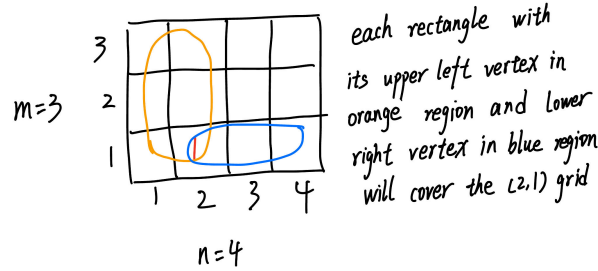 3
m=3
2
1
1
2
3
4
n=4
each rectangle with
its upper left vertex in
orange region and lower
right vertex in blue region
will cover the (2,1) grid